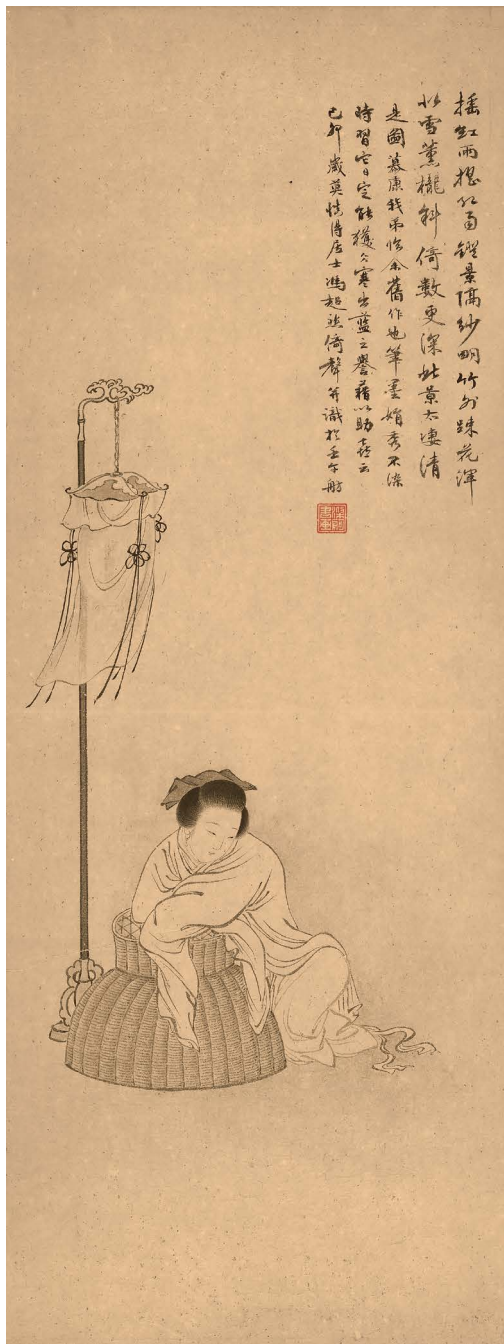 搖紅雨搖紅雨鐙景隔紗明竹外疎花渾
似雪薰櫳斜倚數更深此景太凄清
是圖慕康我弟臨余舊作也筆墨娟秀不染
時習它日定能獲仌寒出藍之譽藉以助喜云
己卯歲莫慎得居士馮超然倚聲并識於壬午舫